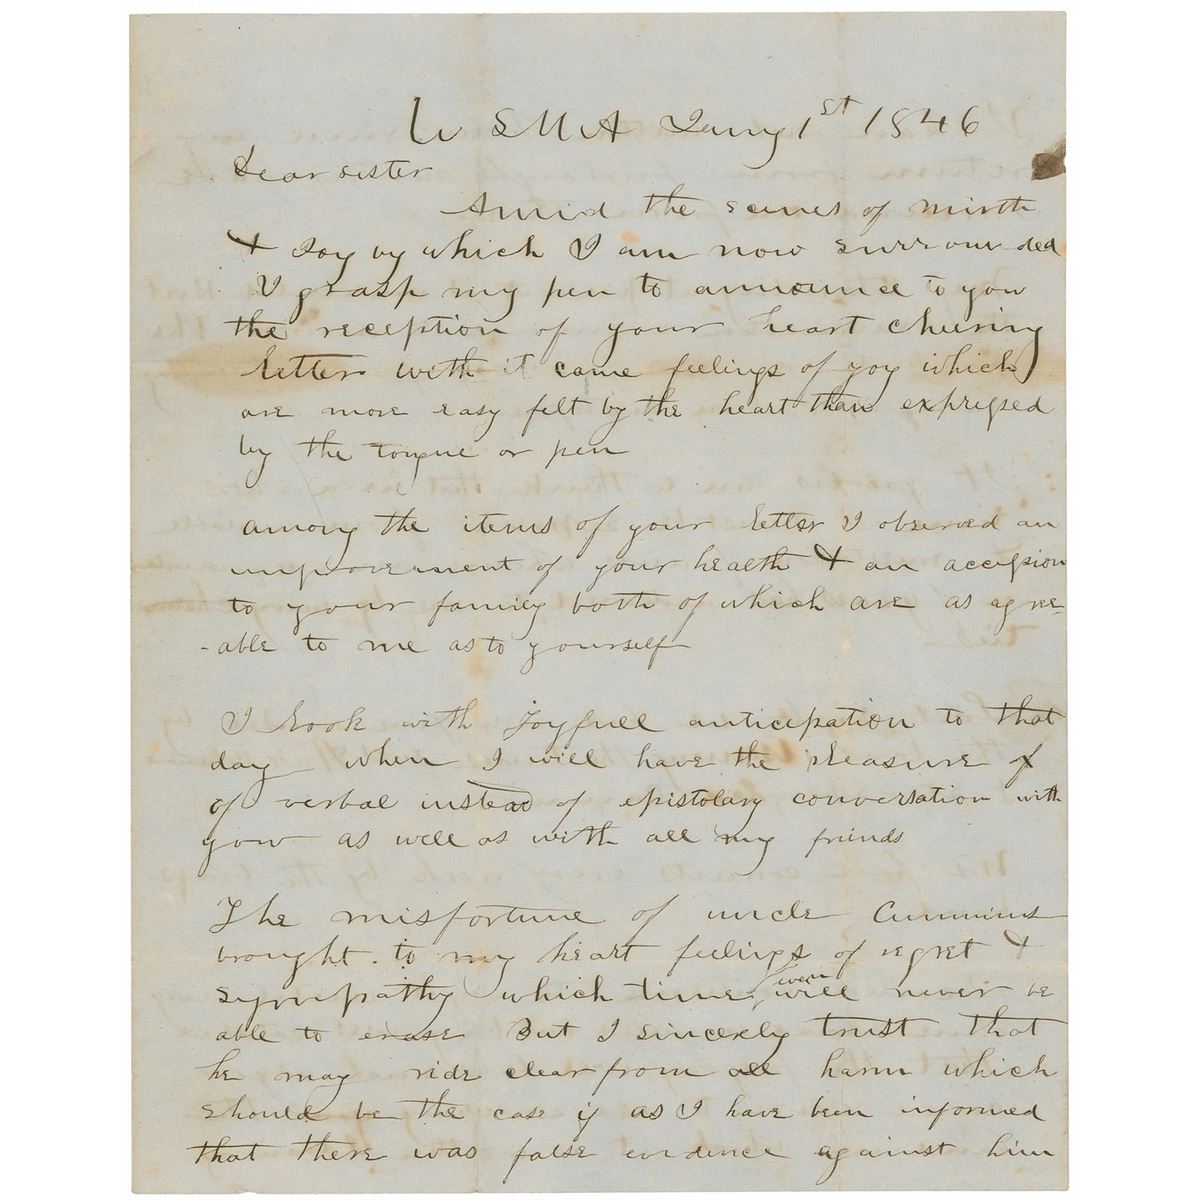 W S M A Jany 1st 1846
Dear sister
Amid the scenes of mirth
& Joy by which I am now surrounded
I grasp my pen to announce to you
the reception of your heart cheering
letter with it came feelings of yoy which
are more easy felt by the heart than expressed
by the tongue or pen
among the items of your letter I observed an
improvement of your health & an accession
to your family both of which are as agree-
-able to me as to yourself
I look with Joyfull anticipation to that
day when I will have the pleasure of
of verbal instead of epistolary conversation with
yow as well as with all my friends
The misfortune of uncle Cummins
brought to my heart feelings of regret &
sympathy which time even will never be
able to erase But I sincerely trust that
he may ride clear from all harm which
should be the case if as I have been informed
that there was false evidence against him